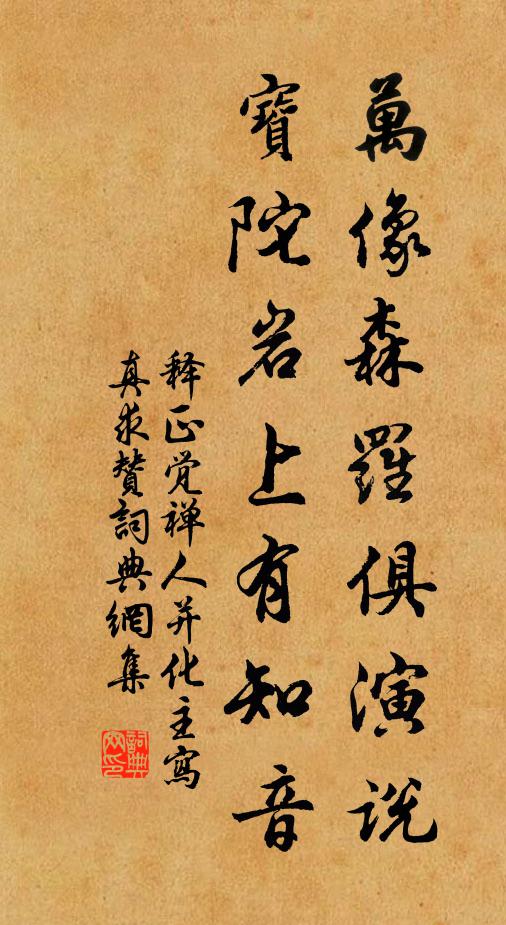 萬像森羅俱演説
寶陀岩上有知音
释正觉禅人并化主寫
真求赞詞典網集
詞典網印